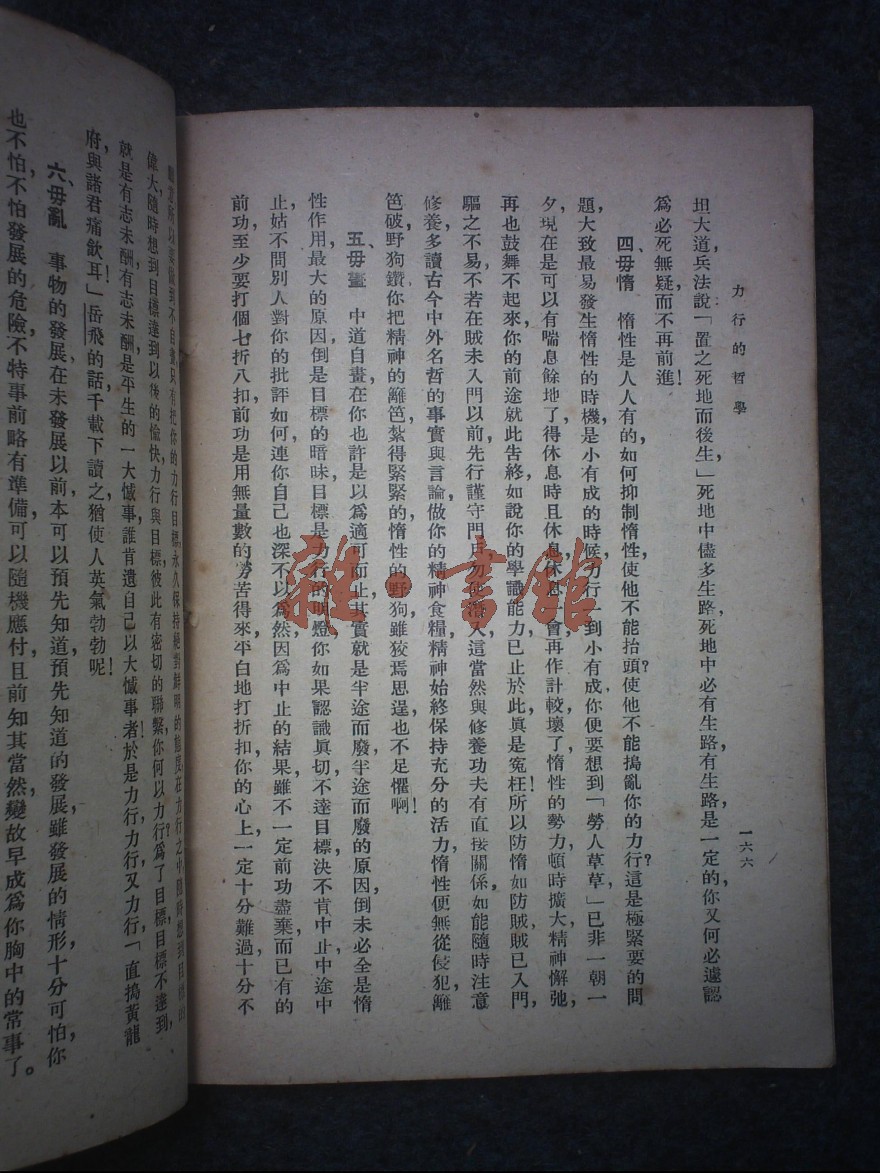 力行的哲學
一六六
坦大道兵法說「置之死地而後生」死地中儘多生路，死地中必有生路有生路，是一定的你又何必遽認
為必死無疑而不再前進！
四、毋惰　惰性是人人有的如何抑制惰性，使他不能抬頭？使他不能搗亂你的力行？這是極緊要的問
題，大致最易發生惰性的時機，是小有成的時候，力行一到小有成，你便要想到「勞人草草，」已非一朝一
夕，現在是可以有喘息餘地了，得休息時且休息，休息一會再作計較，壞了！惰性的勢力，頓時擴大，精神懈弛，
再也鼓舞不起來，你的前途就此告終，如說你的學識能力已止於此，眞是寃枉！所以防惰如防賊，賊已入門，
驅之不易，不若在賊未入門以前，先行謹守門戶，勿使潛入，這當然與修養功夫有直接關係，如能隨時注意
修養，多讀古今中外名哲的事實與言論，做你的精神食糧，精神始終保持充分的活力，惰性便無從侵犯，籬
笆破，野狗鑽，你把精神的籬笆紮得緊緊的，惰性的野狗，雖狡焉思逞，也不足懼啊！
五、毋畫　中道自畫，在你也許是以為適可而止，其實就是半途而廢，半途而廢的原因，倒未必全是惰
性作用，最大的原因，倒是目標的暗昧，目標是力行的明燈，你如果認識眞切，不達目標，決不肯中止，中途中
止，姑不問別人對你的批評如何，連你自己也深不以為然，因為中止的結果，雖不一定前功盡棄，而已有的
前功，至少要打個七折八扣，前功是用無量數的勞苦得來，平白地打折扣，你的心上，一定十分難過，十分不
所以要做到不自畫，只有把你的力行目標，永久保持絕對鮮明的態度，在力行之中，隨時想到目標的
偉大，隨時想到目標達到以後的愉快，力行與目標，彼此有密切的聯繫，你何以力行？為了目標，目標不達到，
就是有志未酬，有志未酬，是平生的一大憾事，誰肯遺自己以大憾事者！於是力行，力行，又力行，「直搗黃龍
府，與諸君痛飲耳！」岳飛的話，千載下讀之，猶使人英氣勃勃呢！
六、毋亂　事物的發展，在未發展以前，本可以預先知道，預先知道的發展，雖發展的情形，十分可怕，你
也不怕，不怕發展的危險，不特事前略有準備，可以隨機應付，且前知其當然，變故早成為你胸中的常事了。
雜·書館